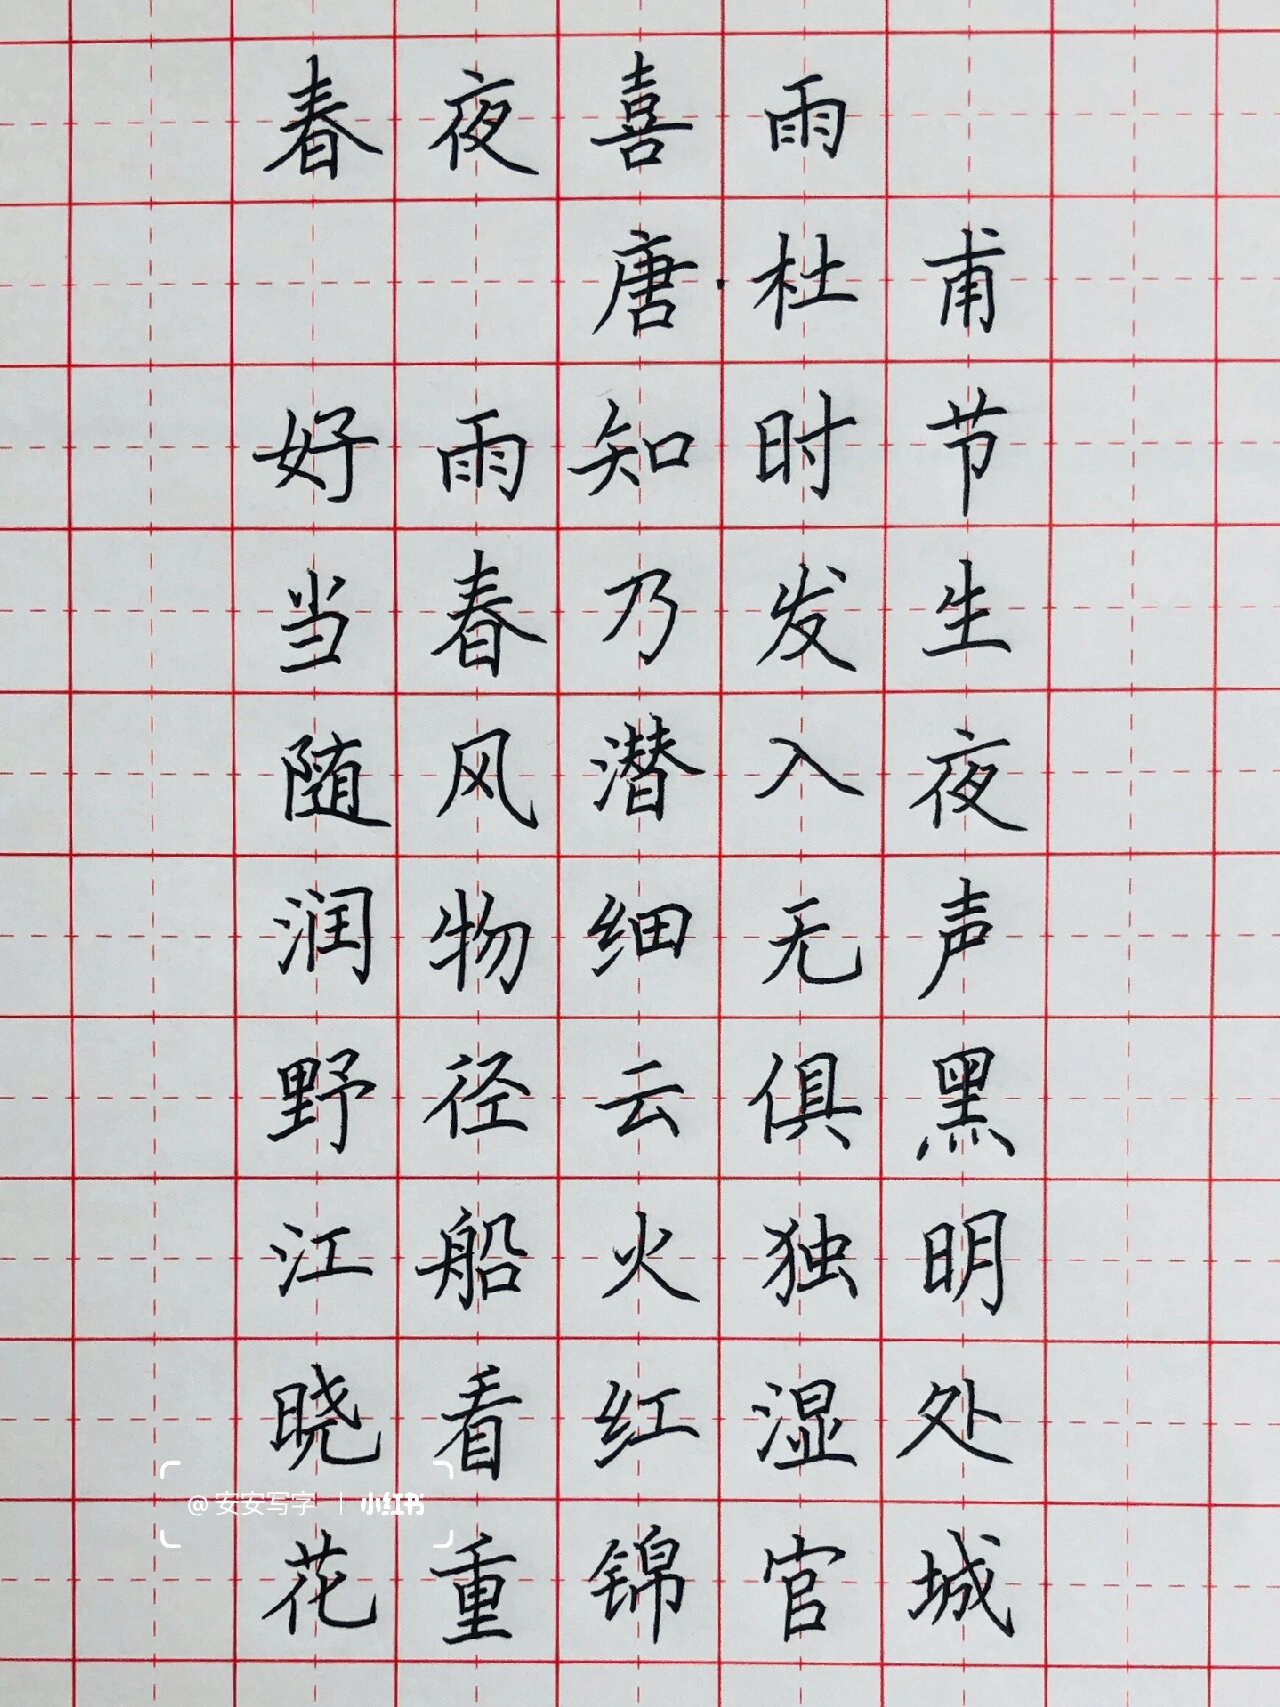 春夜喜雨
唐·杜甫
好雨知时节
当春乃发生
随风潜入夜
润物细无声
野径云俱黑
江船火独明
晓看红湿处
@安安写字 | 小红书
花重锦官城